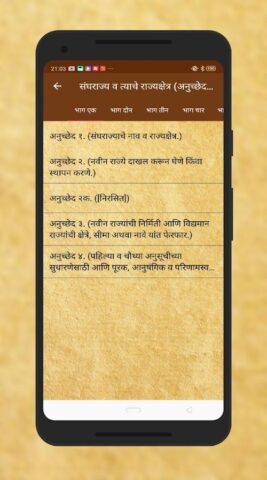 21:03
संघराज्य व त्याचे राज्यक्षेत्र (अनुच्छेद...
भाग एक भाग दोन भाग तीन भाग चार
अनुच्छेद १. (संघराज्याचे नाव व राज्यक्षेत्र.)
अनुच्छेद २. (नवीन राज्ये दाखल करून घेणे किंवा
स्थापन करणे.)
अनुच्छेद २क. ([निरसित])
अनुच्छेद ३. (नवीन राज्यांची निर्मिती आणि विद्यमान
राज्यांची क्षेत्रे, सीमा अथवा नावे यांत फेरफार.)
अनुच्छेद ४. (पहिल्या व चौथ्या अनुसूचीच्या
सुधारणेसाठी आणि पूरक, आनुषंगिक व परिणामस्व...